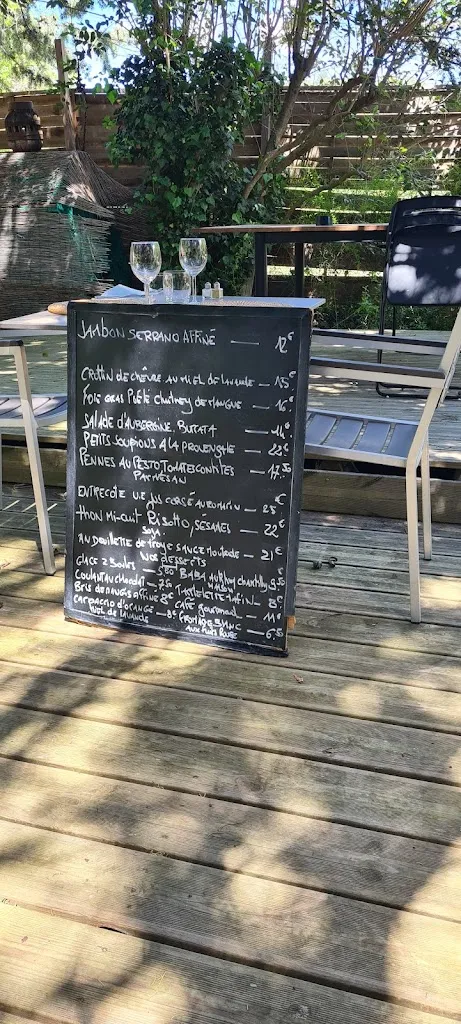 JAMBON SERRANO AFFINÉ — 12€
CROTTIN DE CHÈVRE AU MIEL DE LAVANDE — 15€
FOIE GRAS POÊLÉ Chutney DE MANGUE — 16€
SALADE D'AUBERGINE, BURATA — 14€
PETITS SOUPIONS A LA PROVENÇALE — 22€
PENNES AU PESTO TOMATES CONFITES — 17.50
PARMÉSAN
ENTRECOTE U.E JUS CORSÉ AU ROMARIN — 25€
THON MI-CUIT RISOTTO, SESAMES — 22€
SOJA
ANDOUILLETTE de TROYE SAUCE MOUTARDE — 21€
NOS DESSERTS
GLACE 2 BOULES — 5€50 BABA AU RHUM CHANTILLY 9.50
COULANT AU CHOCOLAT — 7.5 MAISON
BRIE DE NANGIS AFFINÉ 8€ TARTELETTE 8€
CARPACCIO D'ORANGE — 8€ CAFÉ GOURMAND — 11€
MIEL DE LAVANDE FROMAGE BLANC — 6.50
AUX FRUITS ROUGE